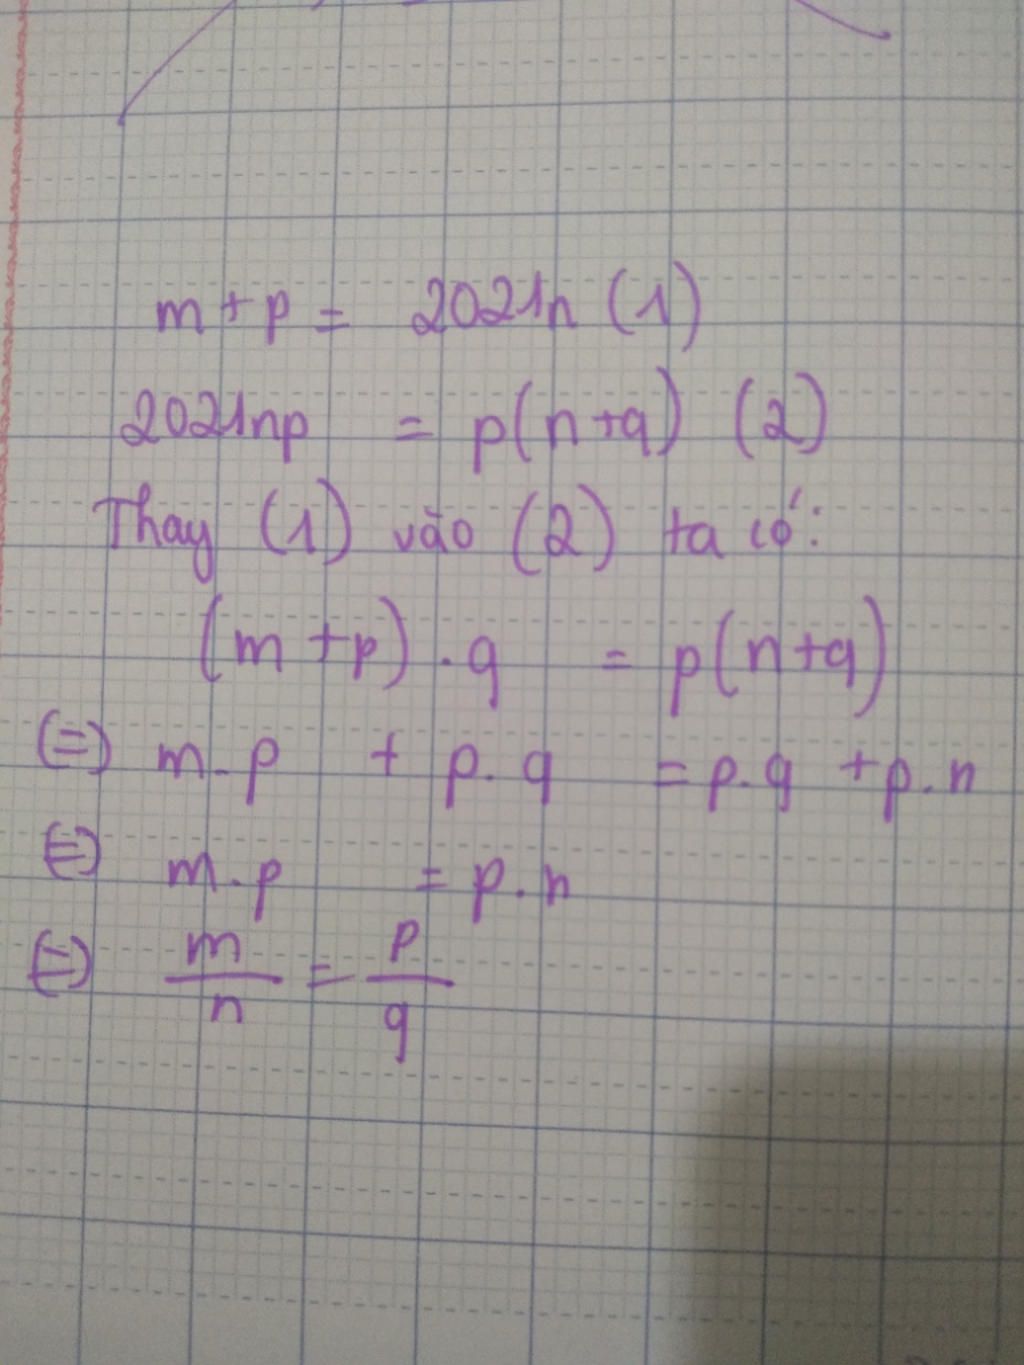 m + p = 2021n (1)
2021np = p(n+q) (2)
Thay (1) vào (2) ta có:
(m + p) . q = p(n+q)
(=) m . p + p . q = p . q + p . n
(=) m . p = p . n
(=) m/n = p/q